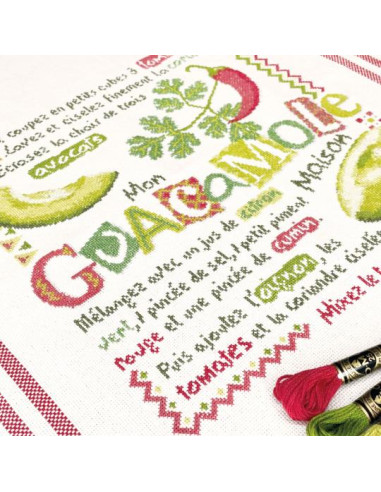 coupez en petits cubes 3 tom
Lavez et ciselez finement la cori
Ecrasez la chair de trois
avocats
Mon
GUACAMOLE
Maison
Mélangez avec un jus de citron
vert, 1 pincée de sel, 1 petit piment
rouge et une pincée de cumin.
Puis ajoutez l'oignon, les
tomates et la coriande ciselée
Mixez le t
DMC